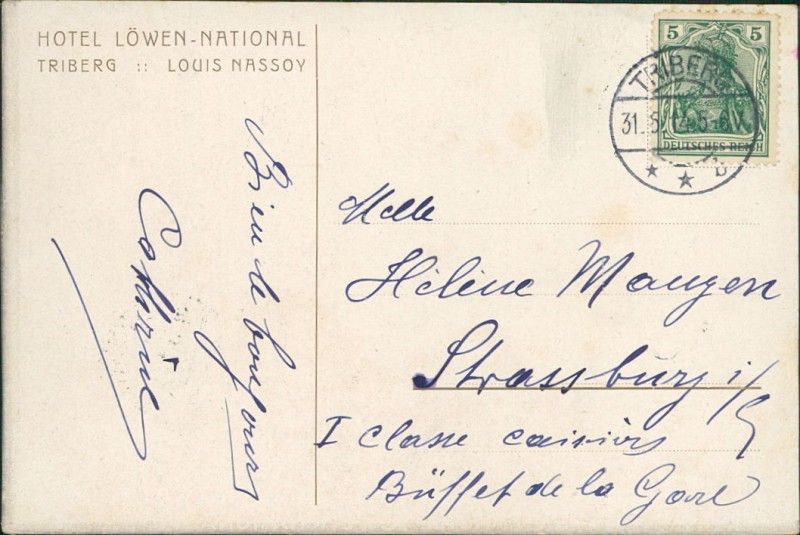 HOTEL LÖWEN-NATIONAL
TRIBERG :: LOUIS NASSOY
Bien le bonjour
5 5
DEUTSCHES REICH
TRIBERG
31. 5-6 V.
Melle
Hélène Mangen
Strassburg i/E
I Classe
Büffet de la Gare